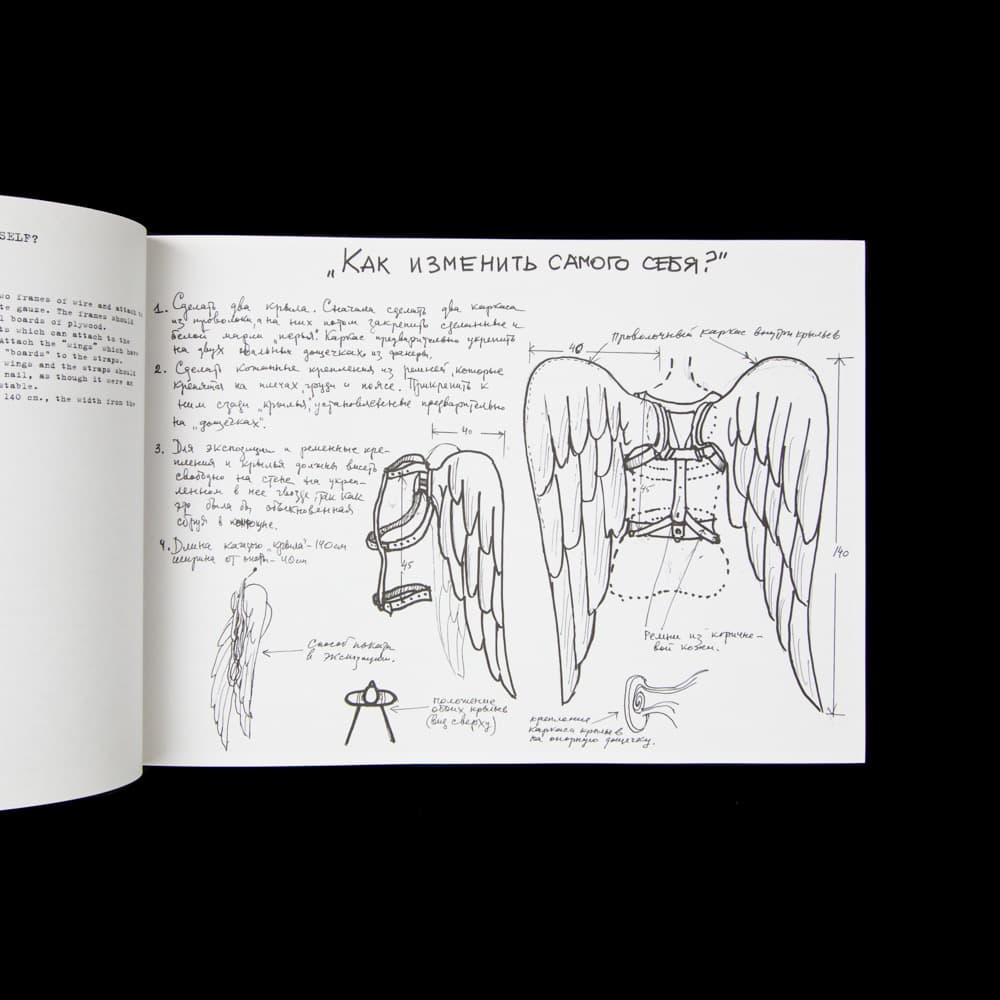 SELF?
wo frames of wire and attach to
te gauze. The frames should
l boards of plywood.
ts which can attach to the
Attach the "wings" which have
"boards" to the straps.
wings and the straps should
nail, as though it were an
stable.
140 cm., the width from the
„Как изменить самого себя?"
1. Сделать два крыла. Сначала сделать два каркаса
из проволоки, а на них потом закрепить сделанные из
белой марли „перья". Каркас предварительно укрепить
на двух овальных дощечках из фанеры.
2. Сделать кожаные крепления из ремней, которые
крепятся на плечах груди и поясе. Прикрепить к
ним сзади „крылья", установленные предварительно
на „дощечках".
3. Для экспозиции и ременные кре-
пления и крылья должны висеть
свободно на стене на укреп-
ленном в нее гвозде, так как
это была бы обыкновенная
сбруя в конюшне.
4. Длина каждого „крыла" - 140 см
ширина от опоры - 40 см
40
45
Способ показа
в экспозиции.
положение
обоих крыльев
(вид сверху)
Проволочный каркас внутри крыльев
40
45
140
Ремни из коричне-
вой кожи.
крепление
каркаса крыльев
на опорную дощечку.